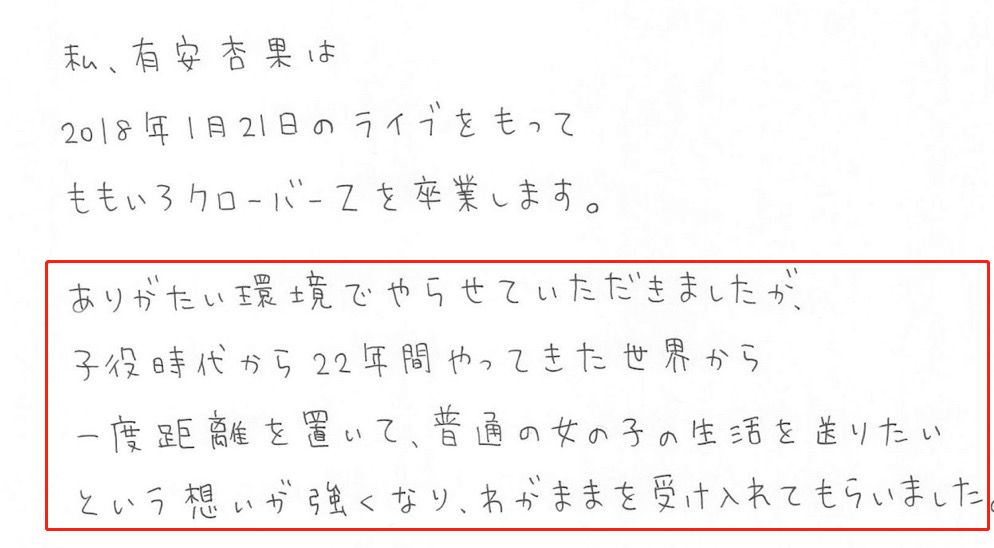 私、有安杏果は
2018年1月21日のライブをもって
ももいろクローバーZを卒業します。
ありがたい環境でやらせていただきましたが、
子役時代から22年間やってきた世界から
一度距離を置いて、普通の女の子の生活を送りたい
という想いが強くなり、わがままを受け入れてもらいました。